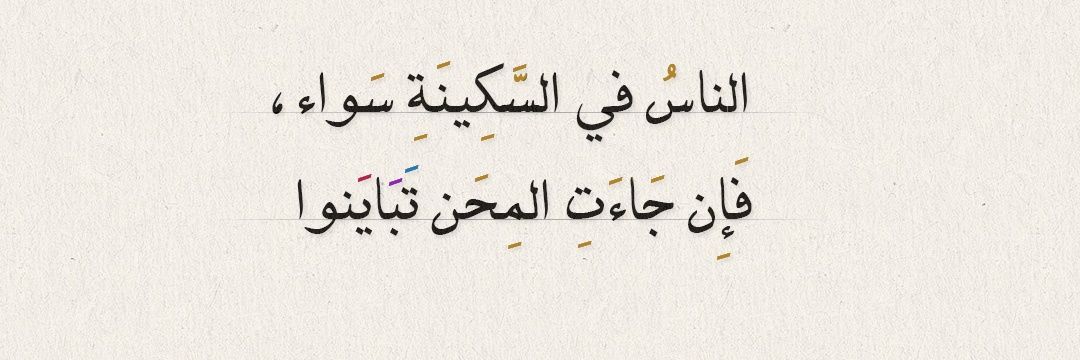 الناسُ في السَّكِينَةِ سَواء،
فَإِن جَاءَتِ المِحَن تَبَايَنوا